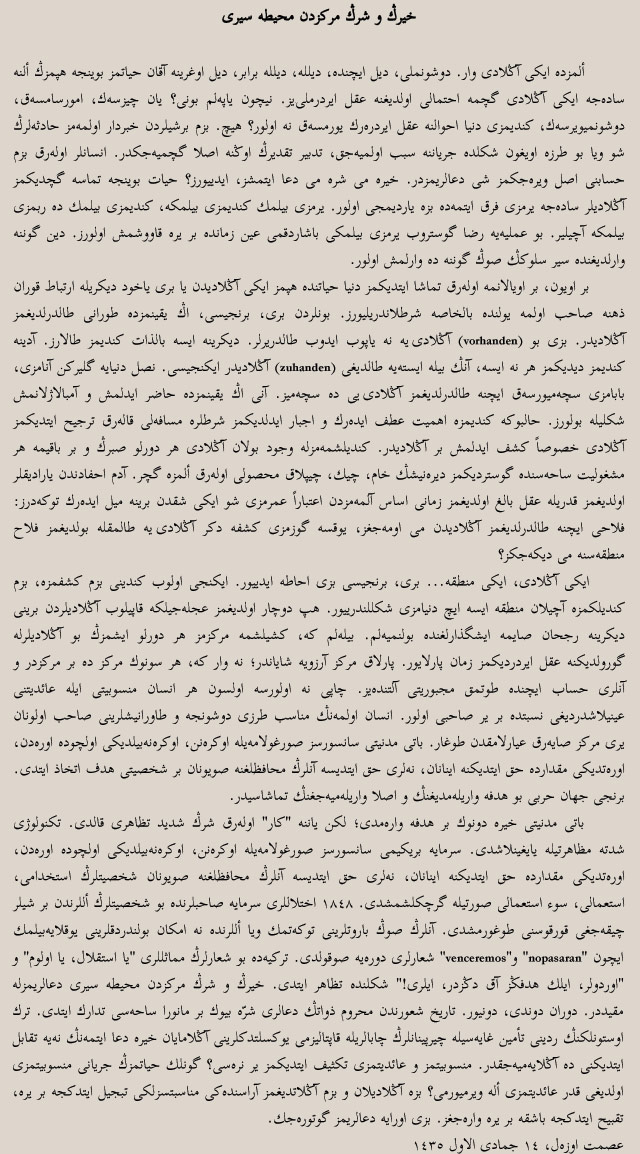 خیرڭ و شرڭ مركزدن محیطه سیری
ألمزده ایكی آڭلادی وار. دوشونملی، دیل ایچنده، دیلله، دیلله برابر، دیل اوغرینه آقان حیاتمز بوینجه هپمزڭ ألنه
ساده‌جه ایكی آڭلادی گچمه احتمالی اولدیغنه عقل ایردرملی‌یز. نیچون یاپه‌لم بونی؟ یان چیزسه‌ك، امورسامسه‌ق،
دوشونمیویرسه‌ك، كندیمزی دنیا احوالنه عقل ایردره‌رك یورمسه‌ق نه اولور؟ هیچ. بزم برشیلردن خبردار اولمه‌مز حادثه‌لرڭ
شو ویا بو طرزه اویغون شكلده جریاننه سبب اولمیه‌جق، تدبیر تقدیرڭ اوڭنه اصلا گچمیه‌جكدر. انسانلر اوله‌رق بزم
حسابنی اصل ویره‌جكمز شی دعالریمزدر. خیره می شره می دعا ایتمشز، ایدییورز؟ حیات بوینجه تماسه گچدیكمز
آڭلادیلر ساده‌جه یرمزی فرق ایتمه‌ده بزه یاردیمجی اولور. یرمزی بیلمك كندیمزی بیلمكه، كندیمزی بیلمك ده ربمزی
بیلمكه آچیلیر. بو عملیه‌یه رضا گوستروب یرمزی بیلمكی باشاردقمی عین زمانده بر یره قاووشمش اولورز. دین گوننه
وارلدیغنده سیر سلوكڭ صوڭ گوننه ده وارلمش اولور.
بر اویون، بر اویالانمه اوله‌رق تماشا ایتدیكمز دنیا حیاتنده هپمز ایكی آڭلادیدن یا بری یاخود دیكریله ارتباط قوران
ذهنه صاحب اولمه یولنده بالخاصه شرطلاندریلیورز. بونلردن بری، برنجیسی، اڭ یقینمزده طورانی طالدرلدیغمز
آڭلادیدر. بزی بو (vorhanden) آڭلادی‌یه نه یاپوب ایدوب طالدریرلر. دیكرینه ایسه بالذات كندیمز طالارز. آدینه
كندیمز دیدیكمز هر نه ایسه، آنڭ بیله ایسته‌یه طالدیغی (zuhanden) آڭلادیدر ایكنجیسی. نصل دنیایه گلیركن آنامزی،
بابامزی سچه‌میورسه‌ق ایچنه طالدرلدیغمز آڭلادی‌یی ده سچه‌میز. آنی اڭ یقینمزده حاضر ایدلمش و آمبالاژلانمش
شكلیله بولورز. حالبوكه كندیمزه اهمیت عطف ایده‌رك و اجبار ایدلدیكمز شرطلره مسافه‌لی قاله‌رق ترجیح ایتدیكمز
آڭلادی خصوصاً كشف ایدلمش بر آڭلادیدر. كندیلشمه‌مزله وجود بولان آڭلادی هر دورلو صبرڭ و بر باقیمه هر
مشغولیت ساحه‌سنده گوستردیكمز دیره‌نیشڭ خام، چیك، چیپلاق محصولی اوله‌رق ألمزه گچر. آدم احفادندن یارادیقلر
اولدیغمز قدریله عقل بالغ اولدیغمز زمانی اساس آلمه‌مزدن اعتباراً عمرمزی شو ایكی شقدن برینه میل ایده‌رك توكه‌درز:
فلاحی ایچنه طالدرلدیغمز آڭلادیدن می اومه‌جغز، یوقسه گوزمزی كشفه دكر آڭلادی‌یه طالمقله بولدیغمز فلاح
منطقه‌سنه می دیكه‌جكز؟
ایكی آڭلادی، ایكی منطقه... بری، برنجیسی بزی احاطه ایدییور. ایكنجی اولوب كندینی بزم كشفمزه، بزم
كندیلكمزه آچیلان منطقه ایسه ایچ دنیامزی شكللندرییور. هپ دوچار اولدیغمز عجله‌جیلكه قاپیلوب آڭلادیلردن برینی
دیكرینه رجحان صایمه ایشگذارلغنده بولنمیه‌لم. بیله‌لم كه، كشیلشمه مركزمز هر دورلو ایشمزڭ بو آڭلادیلرله
گورولدیكنه عقل ایردردیكمز زمان پارلایور. پارلاق مركز آرزویه شایاندر؛ نه وار كه، هر سونوك مركز ده بر مركزدر و
آنلری حساب ایچنده طوتمق مجبوریتی آلتنده‌یز. چاپی نه اولورسه اولسون هر انسان منسوبیتی ایله عائدیتنی
عینیلاشدردیغی نسبتده بر یر صاحبی اولور. انسان اولمه‌نڭ مناسب طرزی دوشونجه و طاورانیشلرینی صاحب اولونان
یری مركز صایه‌رق عیارلامقدن طوغار. باتی مدنیتی سانسورسز صورغولامه‌یله اوكره‌نن، اوكره‌نه‌بیلدیكی اولچوده اوره‌دن،
اوره‌تدیكی مقدارده حق ایتدیكنه اینانان، نه‌لری حق ایتدیسه آنلرڭ محافظلغنه صویونان بر شخصیتی هدف اتخاذ ایتدی.
برنجی جهان حربی بو هدفه واریله‌مدیغنڭ و اصلا واریله‌میه‌جغنڭ تماشاسیدر.
باتی مدنیتی خیره دونوك بر هدفه واره‌مدی؛ لكن یاننه "كار" اوله‌رق شرڭ شدید تظاهری قالدی. تكنولوژی
شدته مظاهرتیله یایغینلاشدی. سرمایه بریكیمی سانسورسز صورغولامه‌یله اوكره‌نن، اوكره‌نه‌بیلدیكی اولچوده اوره‌دن،
اوره‌تدیكی مقدارده حق ایتدیكنه اینانان، نه‌لری حق ایتدیسه آنلرڭ محافظلغنه صویونان شخصیتلرڭ استخدامی،
استعمالی، سوء استعمالی صورتیله گرچكلشمشدی. ١٨٤٨ اختلاللری سرمایه صاحبلرنده بو شخصیتلرڭ أللرندن بر شیلر
چیقه‌جغی قورقوسنی طوغورمشدی. آنلرڭ صوڭ باروتلرینی توكه‌تمك ویا أللرنده نه امكان بولندردقلرینی یوقلایه‌بیلمك
ایچون "nopasaran" و"venceremos" شعارلری دوره‌یه صوقولدی. تركیه‌ده بو شعارلرڭ مماثللری "یا استقلال، یا اولوم" و
"اوردولر، ایلك هدفڭز آق دڭزدر، ایلری!" شكلنده تظاهر ایتدی. خیرڭ و شرڭ مركزدن محیطه سیری دعالریمزله
مقیددر. دوران دوندی، دونیور. تاریخ شعورندن محروم ذواتڭ دعالری شرّه بیوك بر مانورا ساحه‌سی تدارك ایتدی. ترك
اوستونلكنڭ ردینی تأمین غایه‌سیله چیرپینانلرڭ چابالریله قاپتالیزمی یوكسلتدكلرینی آڭلامایان خیره دعا ایتمه‌نڭ نه‌یه تقابل
ایتدیكنی ده آڭلایه‌میه‌جقدر. منسوبیتمز و عائدیتمزی تكثیف ایتدیكمز یر نره‌سی؟ گونلك حیاتمزڭ جریانی منسوبیتمزی
اولدیغی قدر عائدیتمزی أله ویرمیورمی؟ بزه آڭلادیلان و بزم آڭلاتدیغمز آراسنده‌كی مناسبتسزلكی تبجیل ایتدكجه بر یره،
تقبیح ایتدكجه باشقه بر یره واره‌جغز. بزی اورایه دعالریمز گوتوره‌جك.
عصمت اوزه‌ل، ١٤ جمادی الاول ١٤٣٥